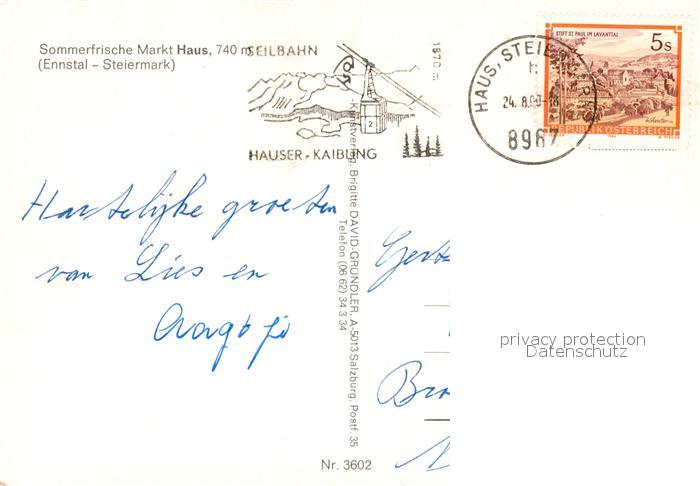 Sommerfrische Markt Haus, 740 m
(Ennstal – Steiermark)
SEILBAHN
1870 m
2
HAUSER - KAIBLING
HAUS, STEIERMARK
24. 8.90-18
8967
STIFT ST. PAUL IM LAVANTTAL
5s
REPUBLIK ÖSTERREICH
Hartelijke groeten
van Lies en
Kunstverlag Brigitte DAVID-GRÜNDLER, A-5013 Salzburg, Postf. 35
Telefon (06 62) 34 3 34
privacy protection
Datenschutz
Nr. 3602